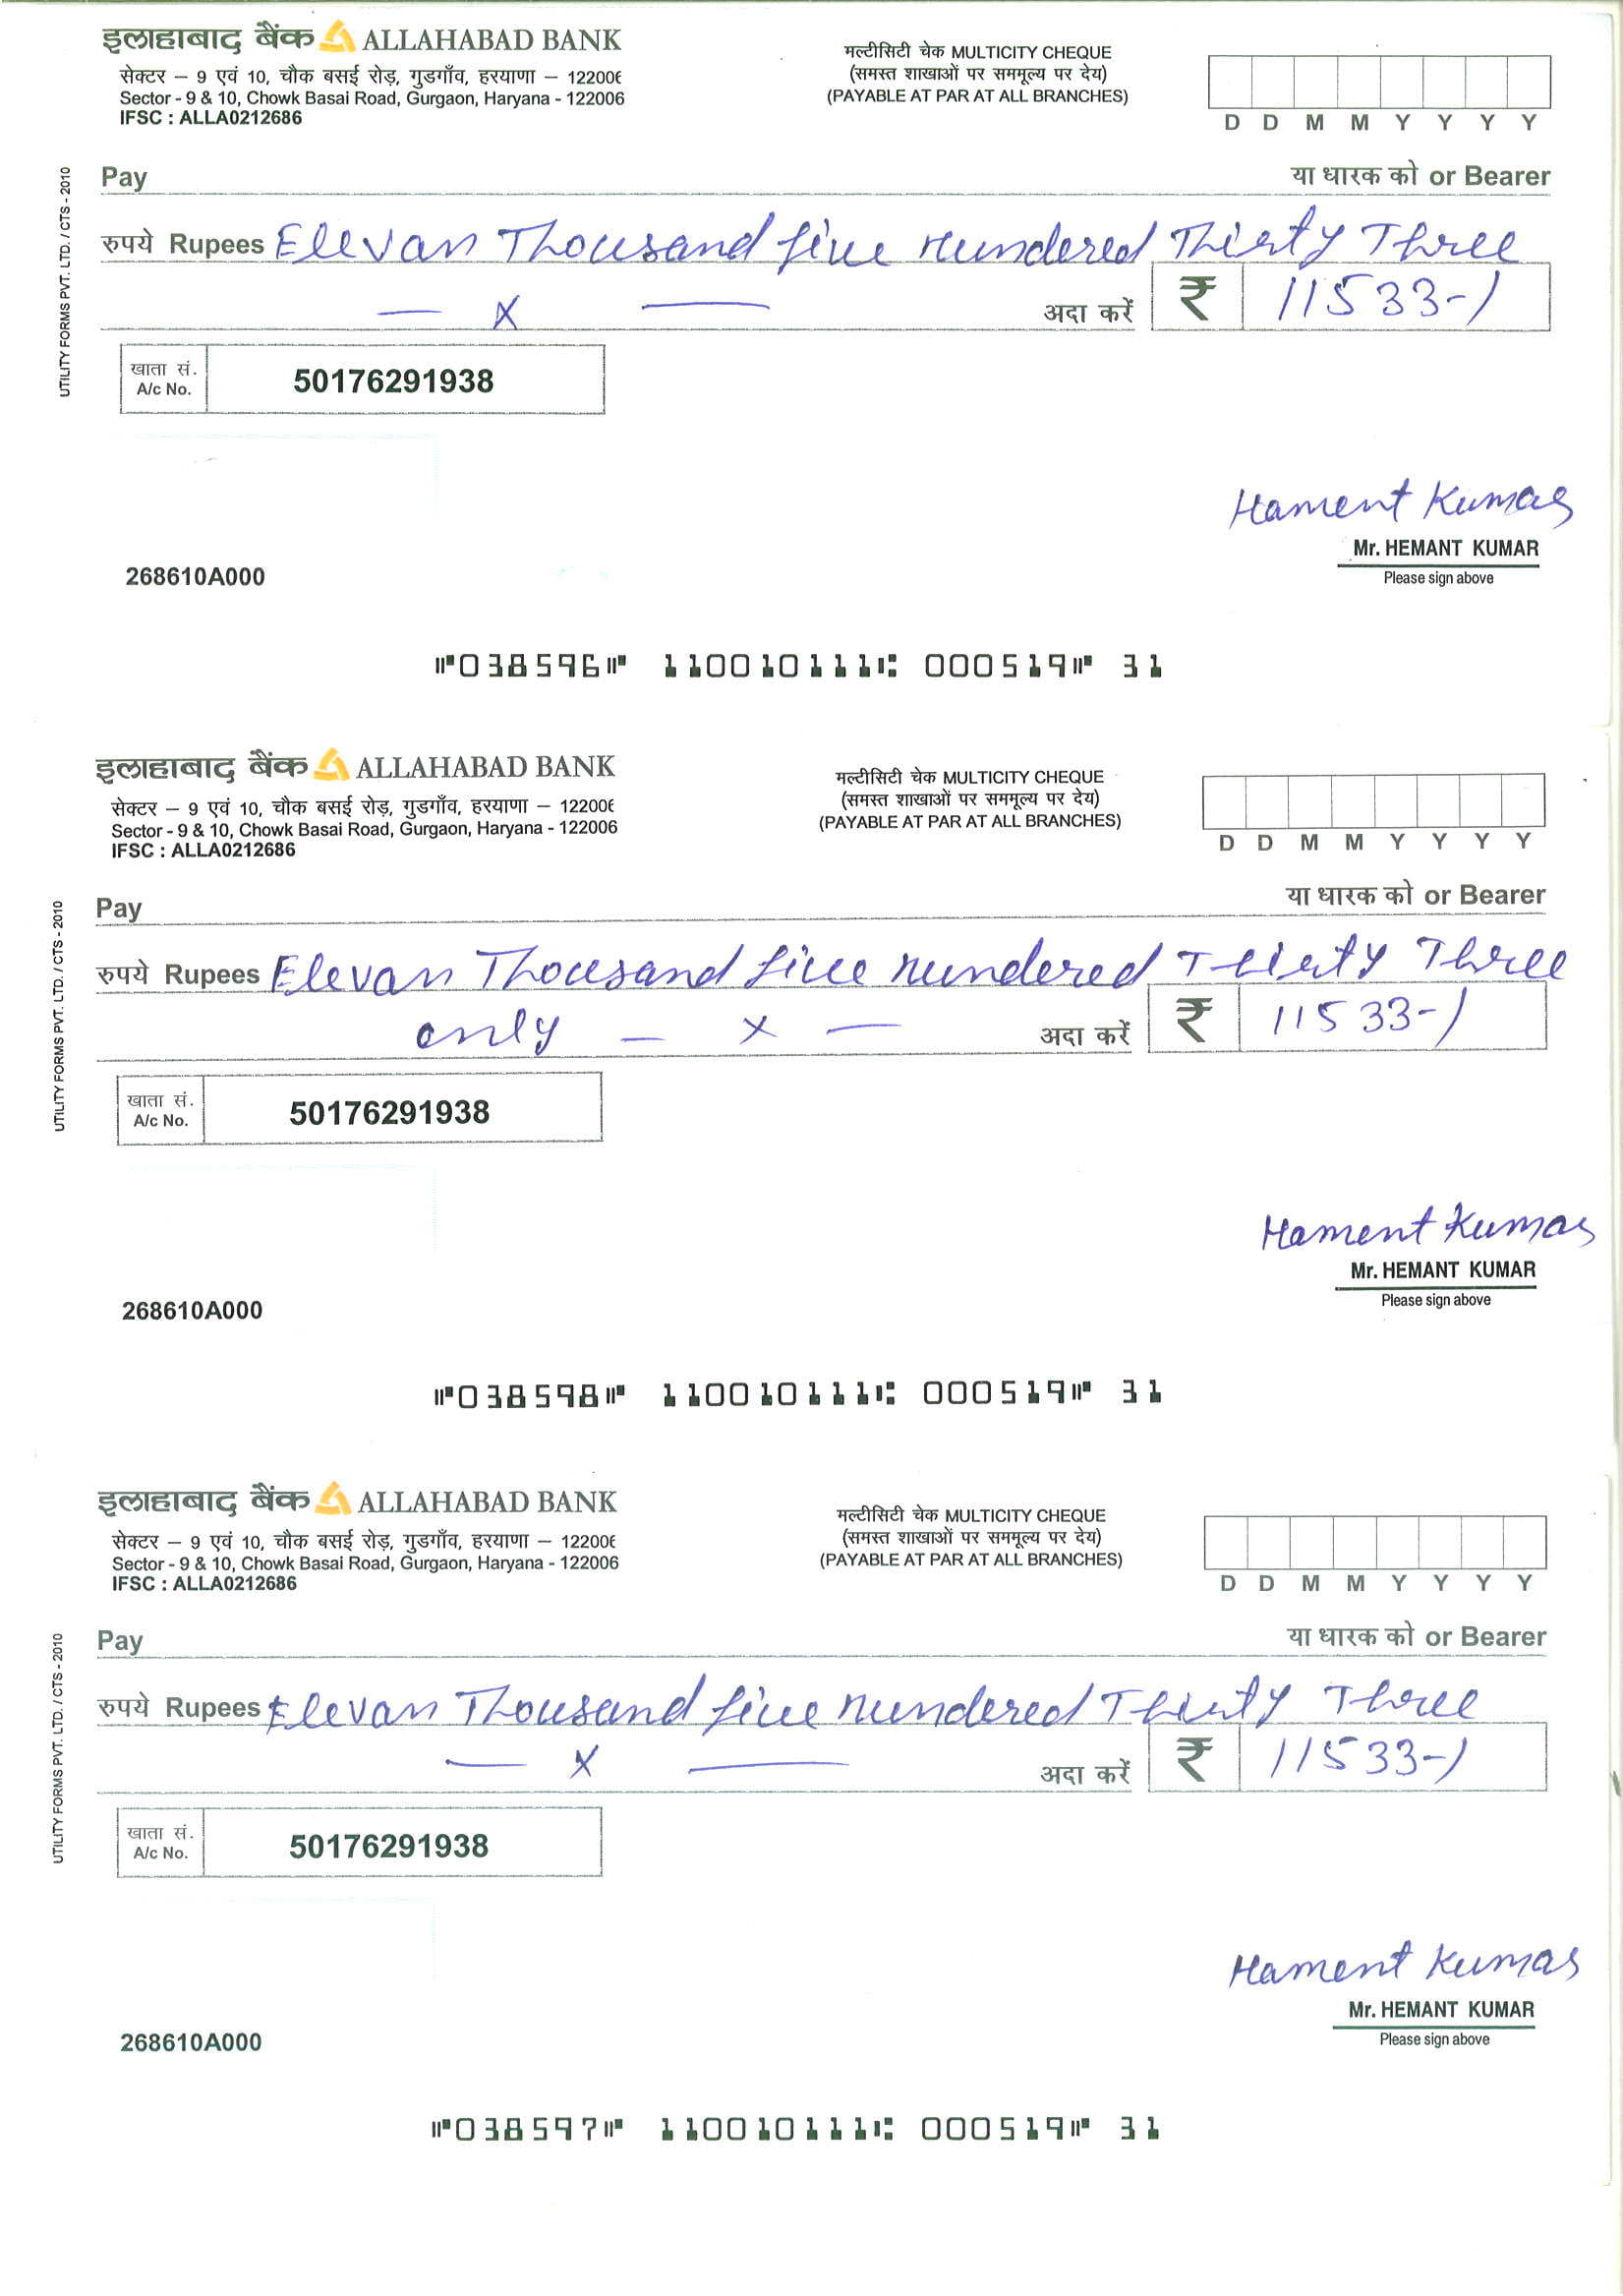 इलाहाबाद बैंक ALLAHABAD BANK
सेक्टर – 9 एवं 10, चौक बसई रोड़, गुडगाँव, हरयाणा – 122006
Sector - 9 & 10, Chowk Basai Road, Gurgaon, Haryana - 122006
IFSC : ALLA0212686
मल्टीसिटी चेक MULTICITY CHEQUE
(समस्त शाखाओं पर सममूल्य पर देय)
(PAYABLE AT PAR AT ALL BRANCHES)
D D M M Y Y Y Y
UTILITY FORMS PVT. LTD. / CTS - 2010
Pay या धारक को or Bearer
रुपये Rupees Elevan Thousand five Hundered Thirty Three
— x — अदा करें ₹ 11533-/
खाता सं.
A/c No. 50176291938
Hament Kumar
Mr. HEMANT KUMAR
Please sign above
268610A000
⑈038596⑈ 110010111⑆ 000519⑈ 31
इलाहाबाद बैंक ALLAHABAD BANK
सेक्टर – 9 एवं 10, चौक बसई रोड़, गुडगाँव, हरयाणा – 122006
Sector - 9 & 10, Chowk Basai Road, Gurgaon, Haryana - 122006
IFSC : ALLA0212686
मल्टीसिटी चेक MULTICITY CHEQUE
(समस्त शाखाओं पर सममूल्य पर देय)
(PAYABLE AT PAR AT ALL BRANCHES)
D D M M Y Y Y Y
UTILITY FORMS PVT. LTD. / CTS - 2010
Pay या धारक को or Bearer
रुपये Rupees Elevan Thousand five Hundered Thirty Three
only — x — अदा करें ₹ 11533-/
खाता सं.
A/c No. 50176291938
Hament Kumar
Mr. HEMANT KUMAR
Please sign above
268610A000
⑈038598⑈ 110010111⑆ 000519⑈ 31
इलाहाबाद बैंक ALLAHABAD BANK
सेक्टर – 9 एवं 10, चौक बसई रोड़, गुडगाँव, हरयाणा – 122006
Sector - 9 & 10, Chowk Basai Road, Gurgaon, Haryana - 122006
IFSC : ALLA0212686
मल्टीसिटी चेक MULTICITY CHEQUE
(समस्त शाखाओं पर सममूल्य पर देय)
(PAYABLE AT PAR AT ALL BRANCHES)
D D M M Y Y Y Y
UTILITY FORMS PVT. LTD. / CTS - 2010
Pay या धारक को or Bearer
रुपये Rupees Elevan Thousand five Hundered Thirty Three
— x — अदा करें ₹ 11533-/
खाता सं.
A/c No. 50176291938
Hament Kumar
Mr. HEMANT KUMAR
Please sign above
268610A000
⑈038597⑈ 110010111⑆ 000519⑈ 31